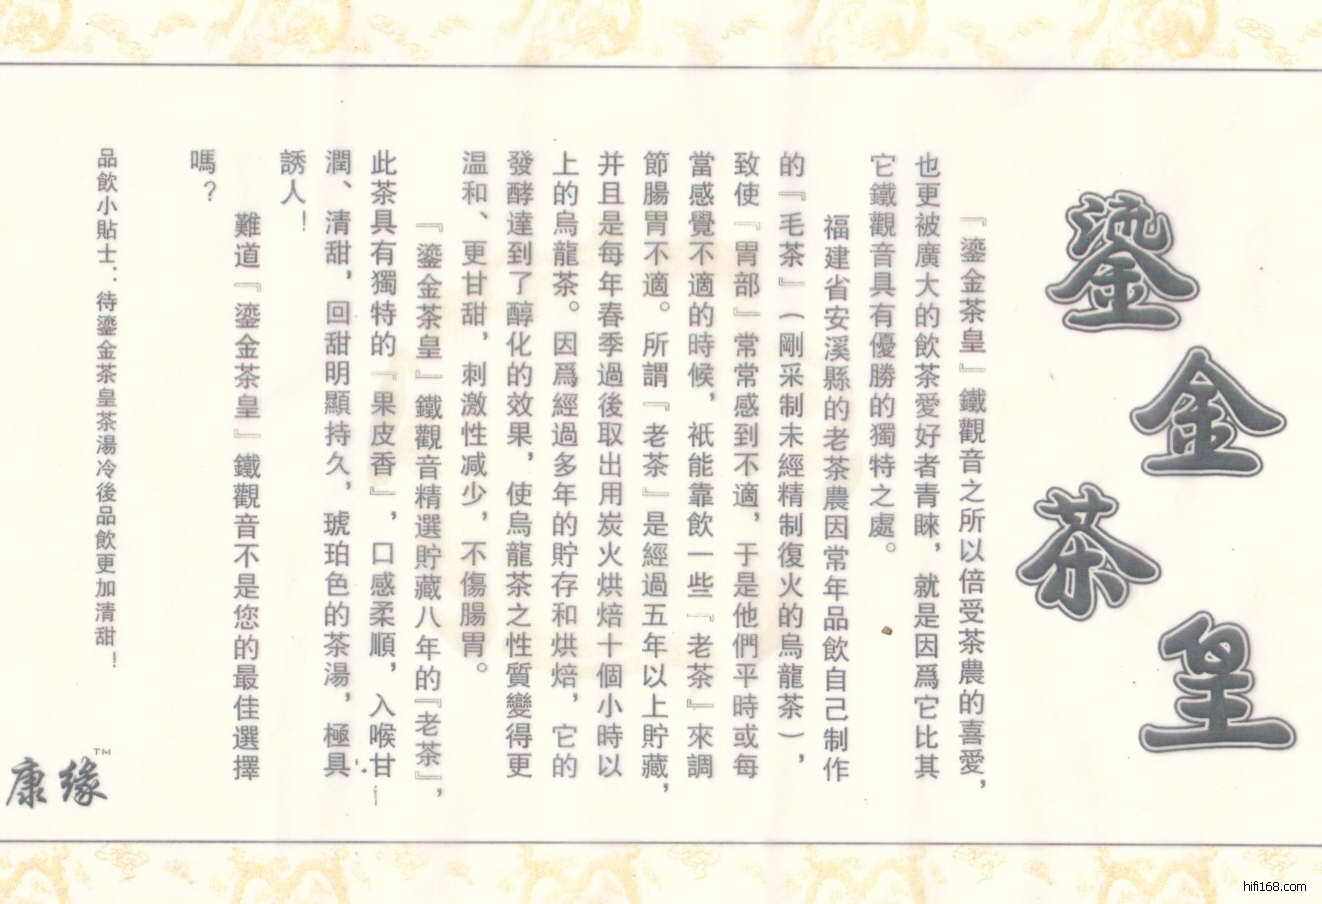 鎏金茶皇
『鎏金茶皇』鐵觀音之所以倍受茶農的喜愛，
也更被廣大的飲茶愛好者青睞，就是因爲它比其
它鐵觀音具有優勝的獨特之處。
福建省安溪縣的老茶農因常年品飲自己制作
的『毛茶』（剛采制未經精制復火的烏龍茶），
致使『胃部』常常感到不適，于是他們平時或每
當感覺不適的時候，祇能靠飲一些『老茶』來調
節腸胃不適。所謂『老茶』是經過五年以上貯藏，
并且是每年春季過後取出用炭火烘焙十個小時以
上的烏龍茶。因爲經過多年的貯存和烘焙，它的
發酵達到了醇化的效果，使烏龍茶之性質變得更
温和、更甘甜，刺激性減少，不傷腸胃。
『鎏金茶皇』鐵觀音精選貯藏八年的『老茶』，
此茶具有獨特的『果皮香』，口感柔順，入喉甘
潤、清甜，回甜明顯持久，琥珀色的茶湯，極具
誘人！
難道『鎏金茶皇』鐵觀音不是您的最佳選擇
嗎？
品飲小貼士：待鎏金茶皇茶湯冷後品飲更加清甜！
康缘™
hifi168.com